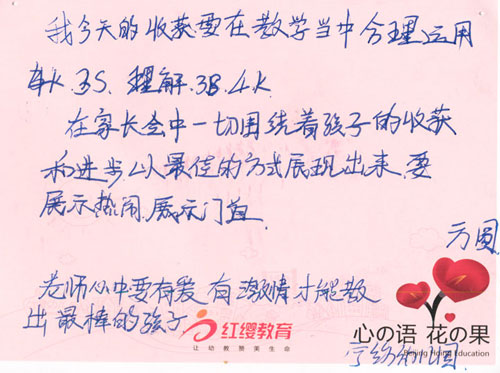 我今天的收获要在教学当中合理运用
4K.3S.理解.3B.4K.
在家长会中一切围绕着孩子的收获
和进步.以最佳的方式展现出来.要
展示热闹.展示门道.
方圆
老师心中要有爱.有激情才能教
出最棒的孩子
红缨教育
让幼教智美生命
心の语 花の果
Beijing Hoing Education
幼儿园